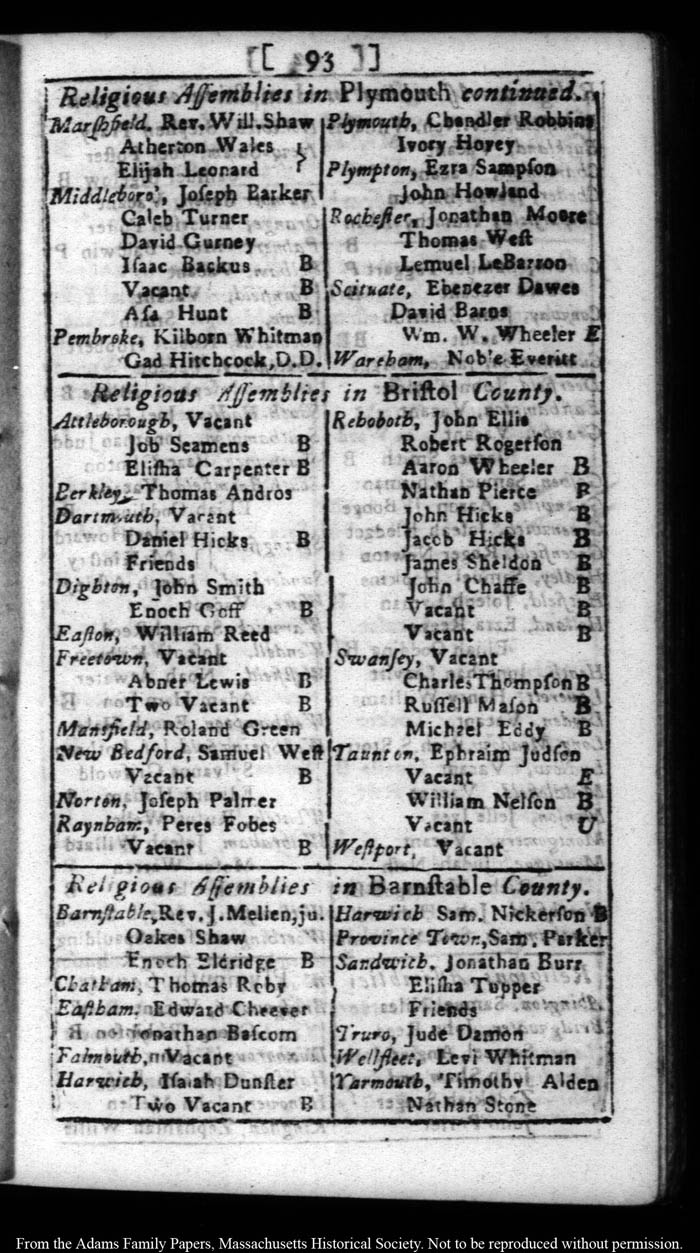 [ 93 ]
Religious Aſſemblies in Plymouth continued.
Marſhfield, Rev. Will. Shaw
Atherton Wales }
Elijah Leonard
Middleboro', Joſeph Barker
Caleb Turner
David Gurney
Iſaac Backus B
Vacant B
Aſa Hunt B
Pembroke, Kilborn Whitman
Gad Hitchcock, D.D.
Plymouth, Chandler Robbins
Ivory Hovey
Plympton, Ezra Sampſon
John Howland
Rocheſter, Jonathan Moore
Thomas Weſt
Lemuel LeBarron
Scituate, Ebenezer Dawes
David Barns
Wm. W. Wheeler E
Wareham, Noble Everitt
Religious Aſſemblies in Briſtol County.
Attleborough, Vacant
Job Seamens B
Eliſha Carpenter B
Berkley, Thomas Andros
Dartmouth, Vacant
Daniel Hicks B
Friends
Dighton, John Smith
Enoch Goff B
Eaſton, William Reed
Freetown, Vacant
Abner Lewis B
Two Vacant B
Mansfield, Roland Green
New Bedford, Samuel Weſt
Vacant B
Norton, Joſeph Palmer
Raynham, Peres Fobes
Vacant B
Rehoboth, John Ellis
Robert Rogerſon
Aaron Wheeler B
Nathan Pierce B
John Hicks B
Jacob Hicks B
James Sheldon B
John Chaffe B
Vacant B
Vacant B
Swanſey, Vacant
Charles Thompſon B
Ruſſell Maſon B
Michael Eddy B
Taunton, Ephraim Judſon
Vacant E
William Nelſon B
Vacant U
Weſtport, Vacant
Religious Aſſemblies in Barnſtable County.
Barnſtable, Rev. J. Mellen, ju.
Oakes Shaw
Enoch Eldridge B
Chatham, Thomas Roby
Eaſtham, Edward Cheever
Jonathan Baſcom
Falmouth, Vacant
Harwich, Iſaiah Dunſter
Two Vacant B
Harwich Sam. Nickerſon B
Province Town, Sam. Parker
Sandwich, Jonathan Burr
Eliſha Tupper
Friends
Truro, Jude Damon
Wellfleet, Levi Whitman
Yarmouth, Timothy Alden
Nathan Stone
From the Adams Family Papers, Massachusetts Historical Society. Not to be reproduced without permission.